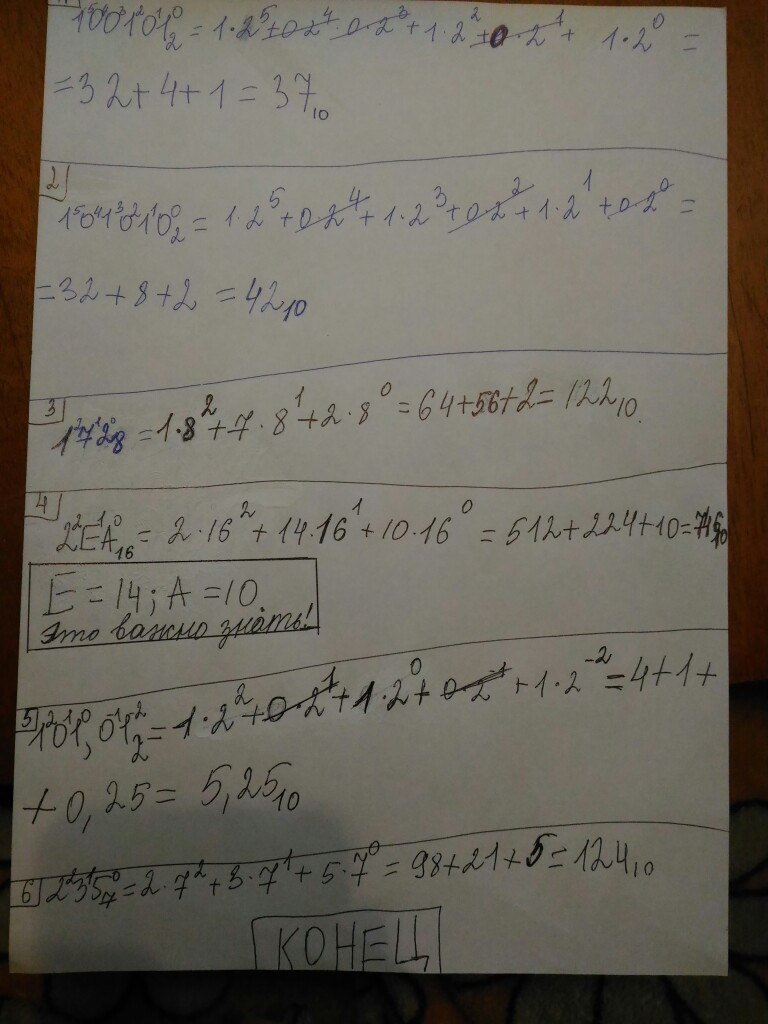 1⁵0⁴0³1²0¹1⁰₂ = 1·2⁵+0·2⁴+0·2³+1·2²+0·2¹+ 1·2⁰ =
=32+4+1=37₁₀
2
1⁵0⁴1³0²1¹0⁰₂ = 1·2⁵+0·2⁴+1·2³+0·2²+1·2¹+0·2⁰=
=32+8+2 =42₁₀
3
1²7¹2⁰₈ =1·8²+7·8¹+2·8⁰=64+56+2=122₁₀.
4
2²E¹A⁰₁₆= 2·16²+14·16¹+10·16⁰ =512+224+10=746₁₀
E=14; A=10
Это важно знать!
5
1²0¹1⁰,0⁻¹1⁻²₂=1·2²+0·2¹+1·2⁰+0·2⁻¹+1·2⁻²=4+1+
+0,25= 5,25₁₀
6 2²3¹5⁰₇=2·7²+3·7¹+5·7⁰=98+21+5=124₁₀
КОНЕЦ